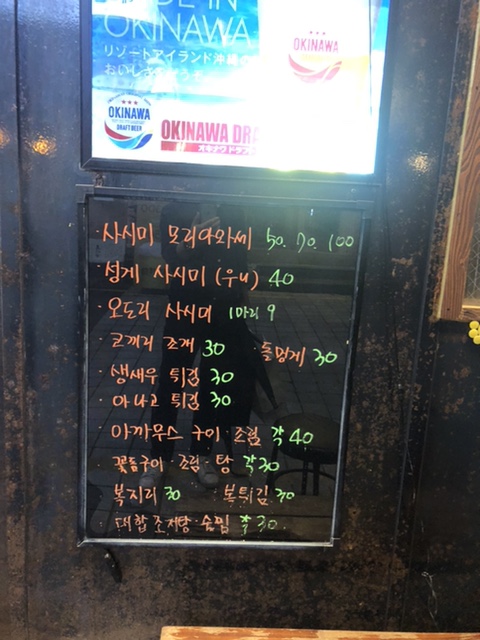 MADE IN
OKINAWA
リゾートアイランド沖縄の
OKINAWA
OKINAWA
DRAFT BEER
OKINAWA DRA
オキナワ ドラフ
· 사시미 모리아와세 50. 70. 100
· 성게 사시미 (우니) 40
· 오도리 사시미 1마리 9
· 코끼리 조개 30 · 돌멍게 30
· 생새우 튀김 30
· 아나고 튀김 30
· 아까무스 구이 · 조림 각 40
· 꽃돔구이 · 조림 · 탕 각 30
· 복지리 30 · 복튀김 30
· 대합 조개탕 · 술찜 각 30.